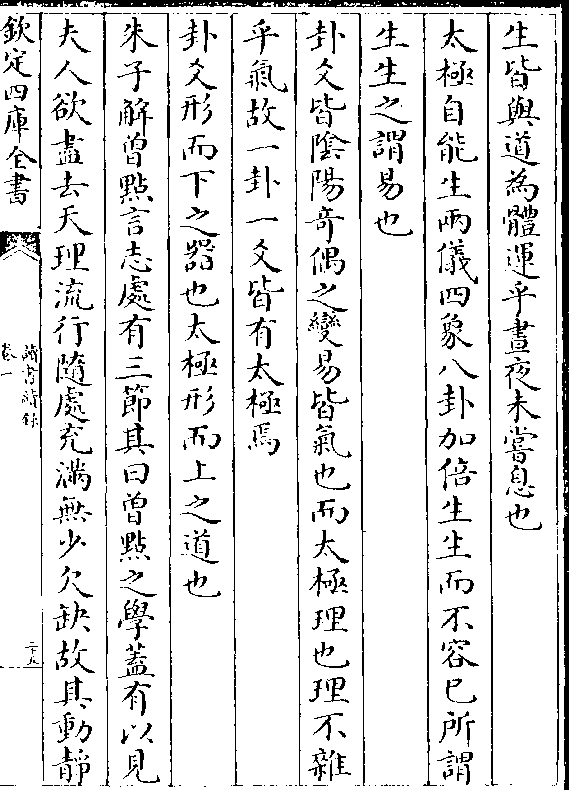 生皆與道為體運乎晝夜未嘗息也
太極自能生兩儀四象八卦加倍生生而不容已所謂
生生之謂易也
卦爻皆陰陽奇偶之變易皆氣也而太極理也理不雜
乎氣故一卦一爻皆有太極焉
卦爻形而下之器也太極形而上之道也
朱子解曾㸃言志處有三節其曰曾㸃之學蓋有以見
夫人欲盡去天理流行隨處充滿無少欠缺故其動靜
欽定四庫全書
讀書續錄
卷一
二十九